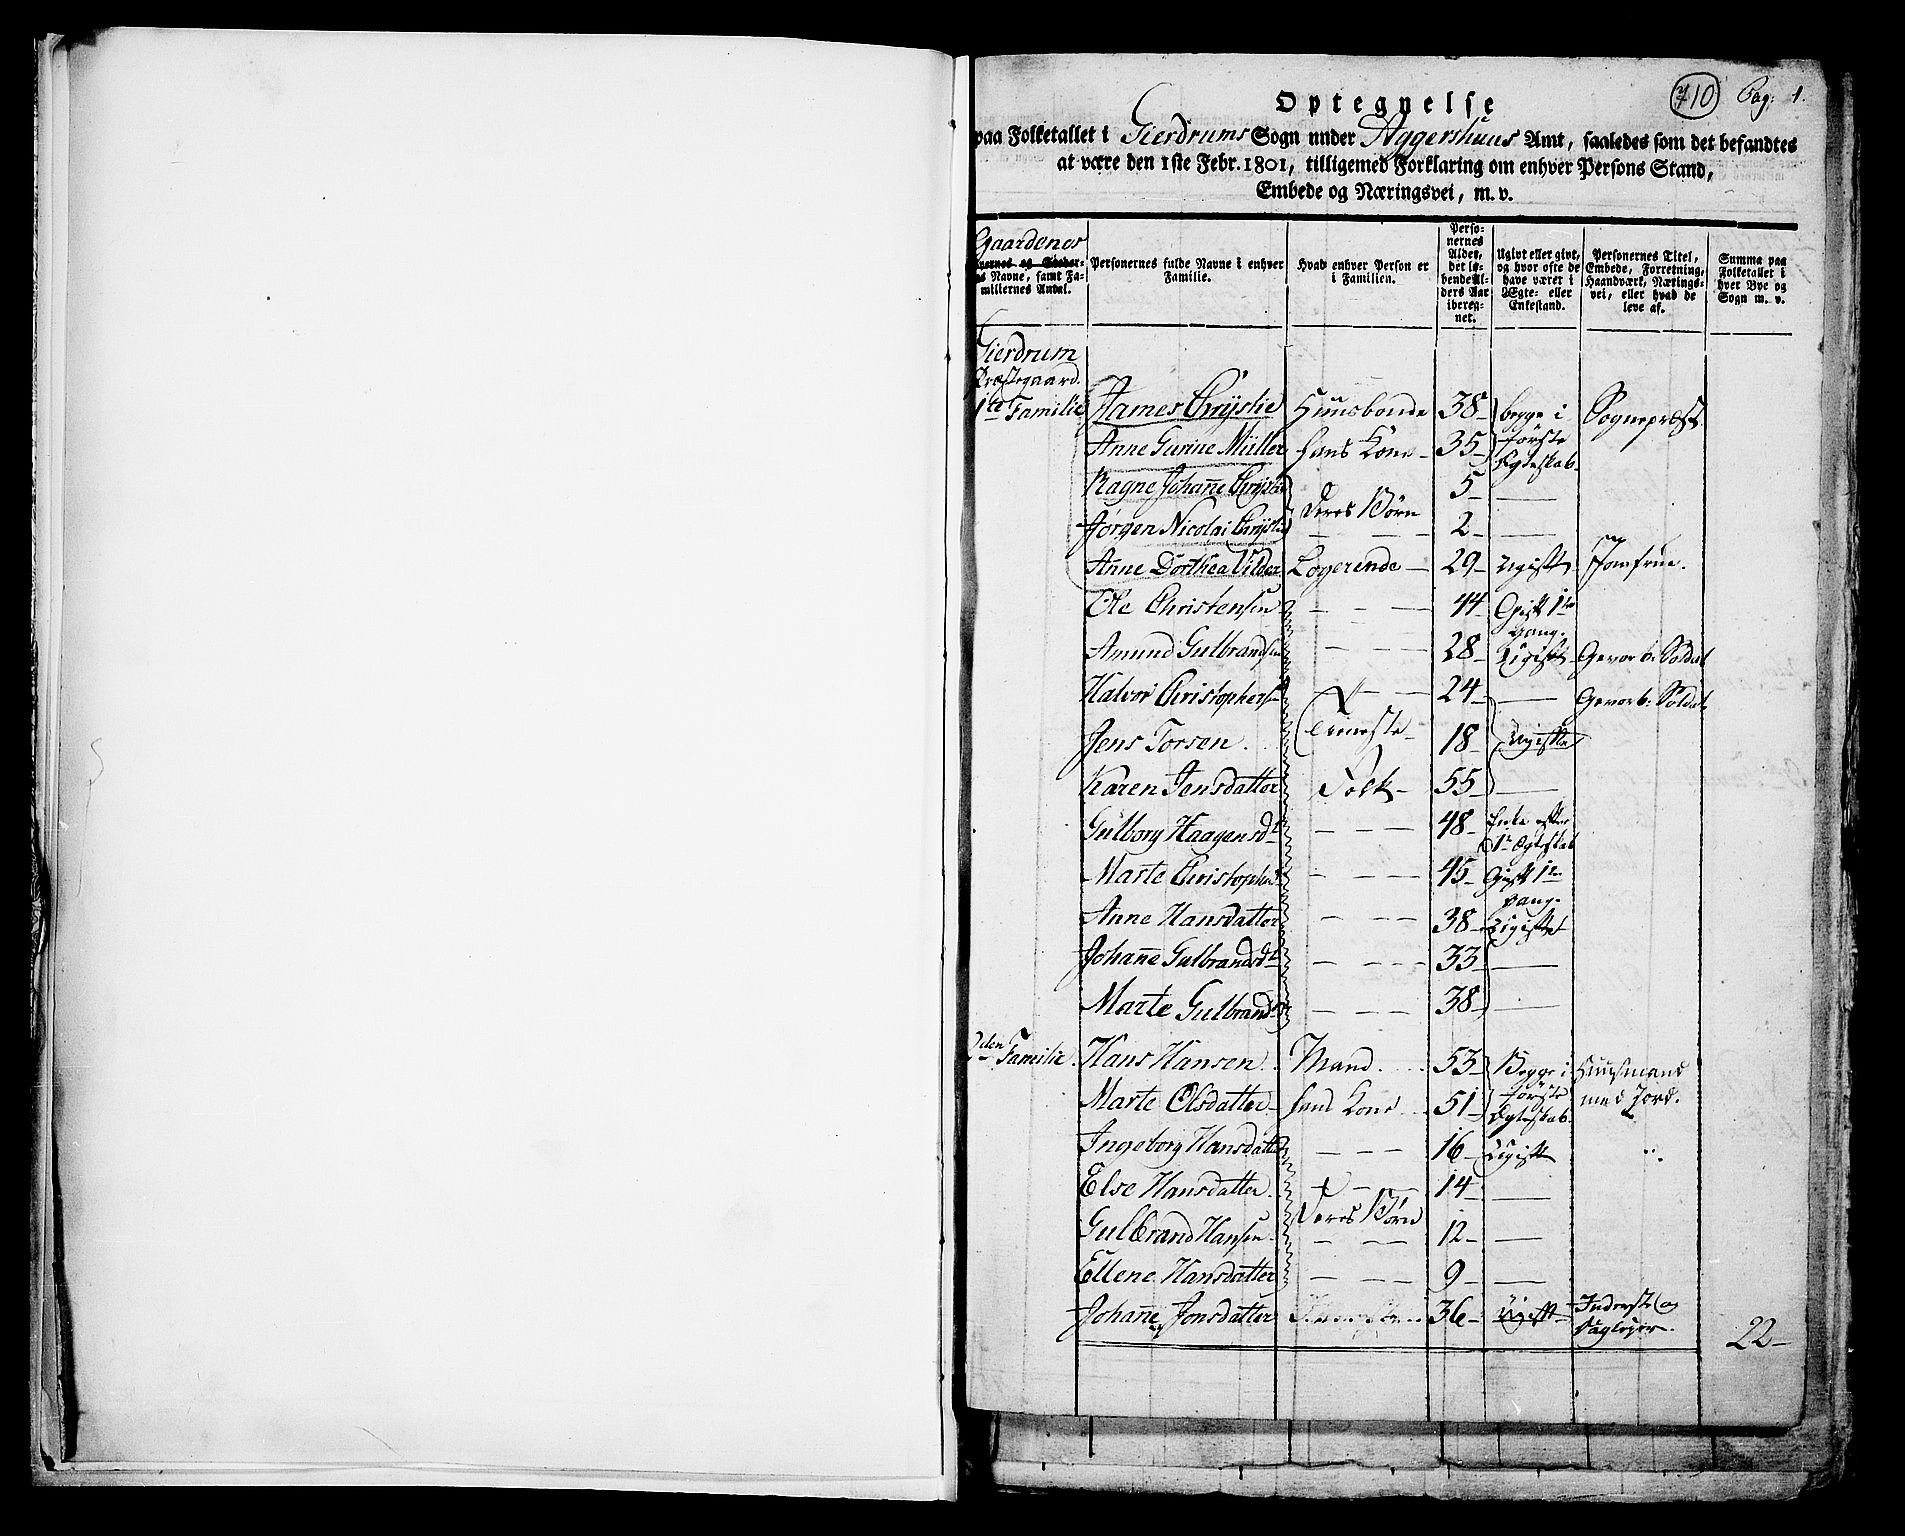 710 Pag: 1.
Optegnelse
paa Folketallet i Gierdrums Sogn under Aggershuus Amt, saaledes som det befandtes
at være den 1ste Febr. 1801, tilligemed Forklaring om enhver Persons Stand,
Embede og Næringsvei, m. v.
Gaardenes
Navne, samt Familliernes Antal.
Personernes fulde Navne i enhver Familie.
Hvad enhver Person er i Familien.
Personernes Alder, det løbende Alders Aar iberegnet.
Ugivt eller givt, og hvor ofte de have været i Ægte- eller Enkestand.
Personernes Titel, Embede, Forretning, Haandværk, Næringsvei, eller hvad de leve af.
Summa paa Folketallet i hver Bye og Sogn m. v.
Gierdrum
Præstegaard.
1te Familie James Chrystie Huusbonde 38 begge i Sognepræst
Anne Gurine Müller hans Kone 35 første Egteskab
Ragne Johanne Chrystie 5
Deres Børn
Jørgen Nicolai Chrystie 2
Anne Dorthea Vilder Logerende 29 Ugift Jomfrue.
Ole Christensen 44 Gift 1te gang.
Amund Gulbrandsen 28 Ugift Gevorb: Soldat
Halvor Christophersen 24 Gevorb: Soldat
Jens Torsen Tieneste 18 Ugifte
Karen Jensdatter Folk 55
Gulborg Haagensdr 48 Enke efter 1te Egteskab
Marte Christophersdr 45 Gift 1te gang.
Anne Hansdatter 38 Ugiftet
Johanne Gulbrandsdr 33
Marte Gulbrandsdr 38
2den Familie Hans Hansen Mand 53 Begge i Huusmand
Marte Olsdatter hans Kone 51 første Egteskab med Jord.
Ingeborg Hansdatter 16 Ugift
Else Hansdatter 14
Deres Børn
Gulbrand Hansen 12
Ellene Hansdatter 9
Johanne Jonsdatter 36 Ugift Inderste og Daglejer.
22